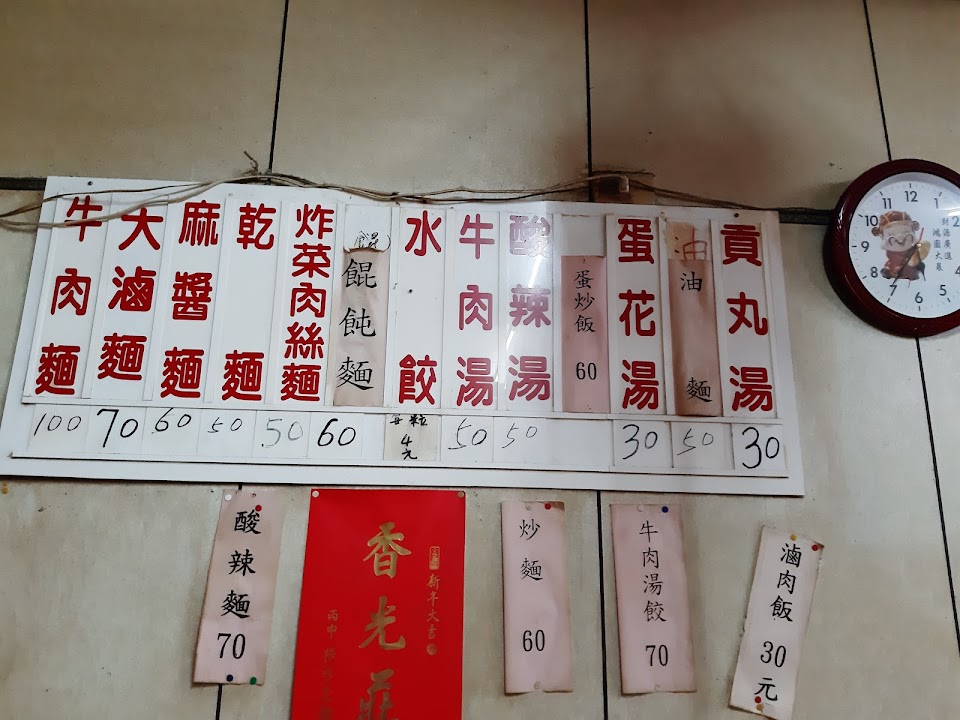 牛肉麵
大滷麵
麻醬麵
乾麵
炸菜肉絲麵
餛
餛飩麵
水餃
牛肉湯
酸辣湯
蛋炒飯 60
蛋花湯
油麵
貢丸湯
100
70
60
50
50
60
每粒4元
50
50
30
50
30
財源廣進
鴻圖大展
12
1
2
3
4
5
6
7
8
9
10
11
酸辣麵 70
新年大吉
香光莊
丙申
炒麵 60
牛肉湯餃 70
滷肉飯 30元